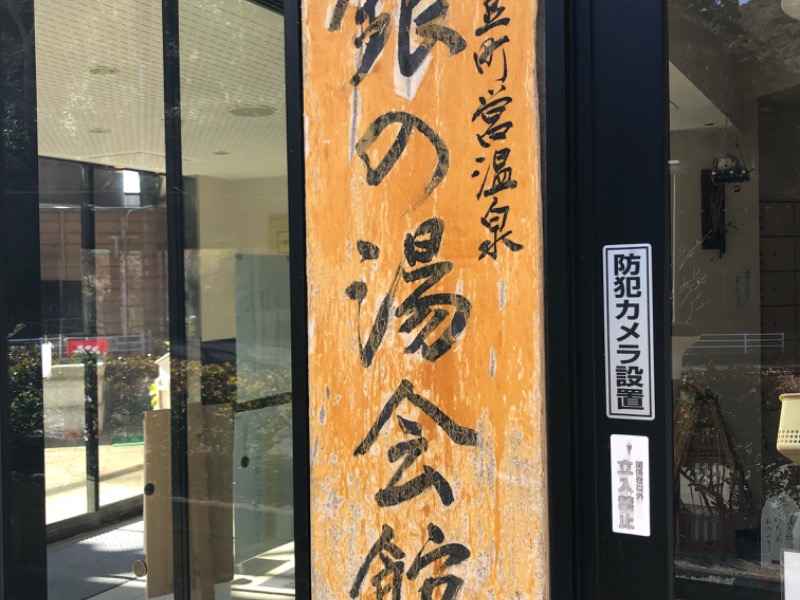 町営温泉
銀の湯会館
防犯カメラ設置
関係者以外
立入禁止